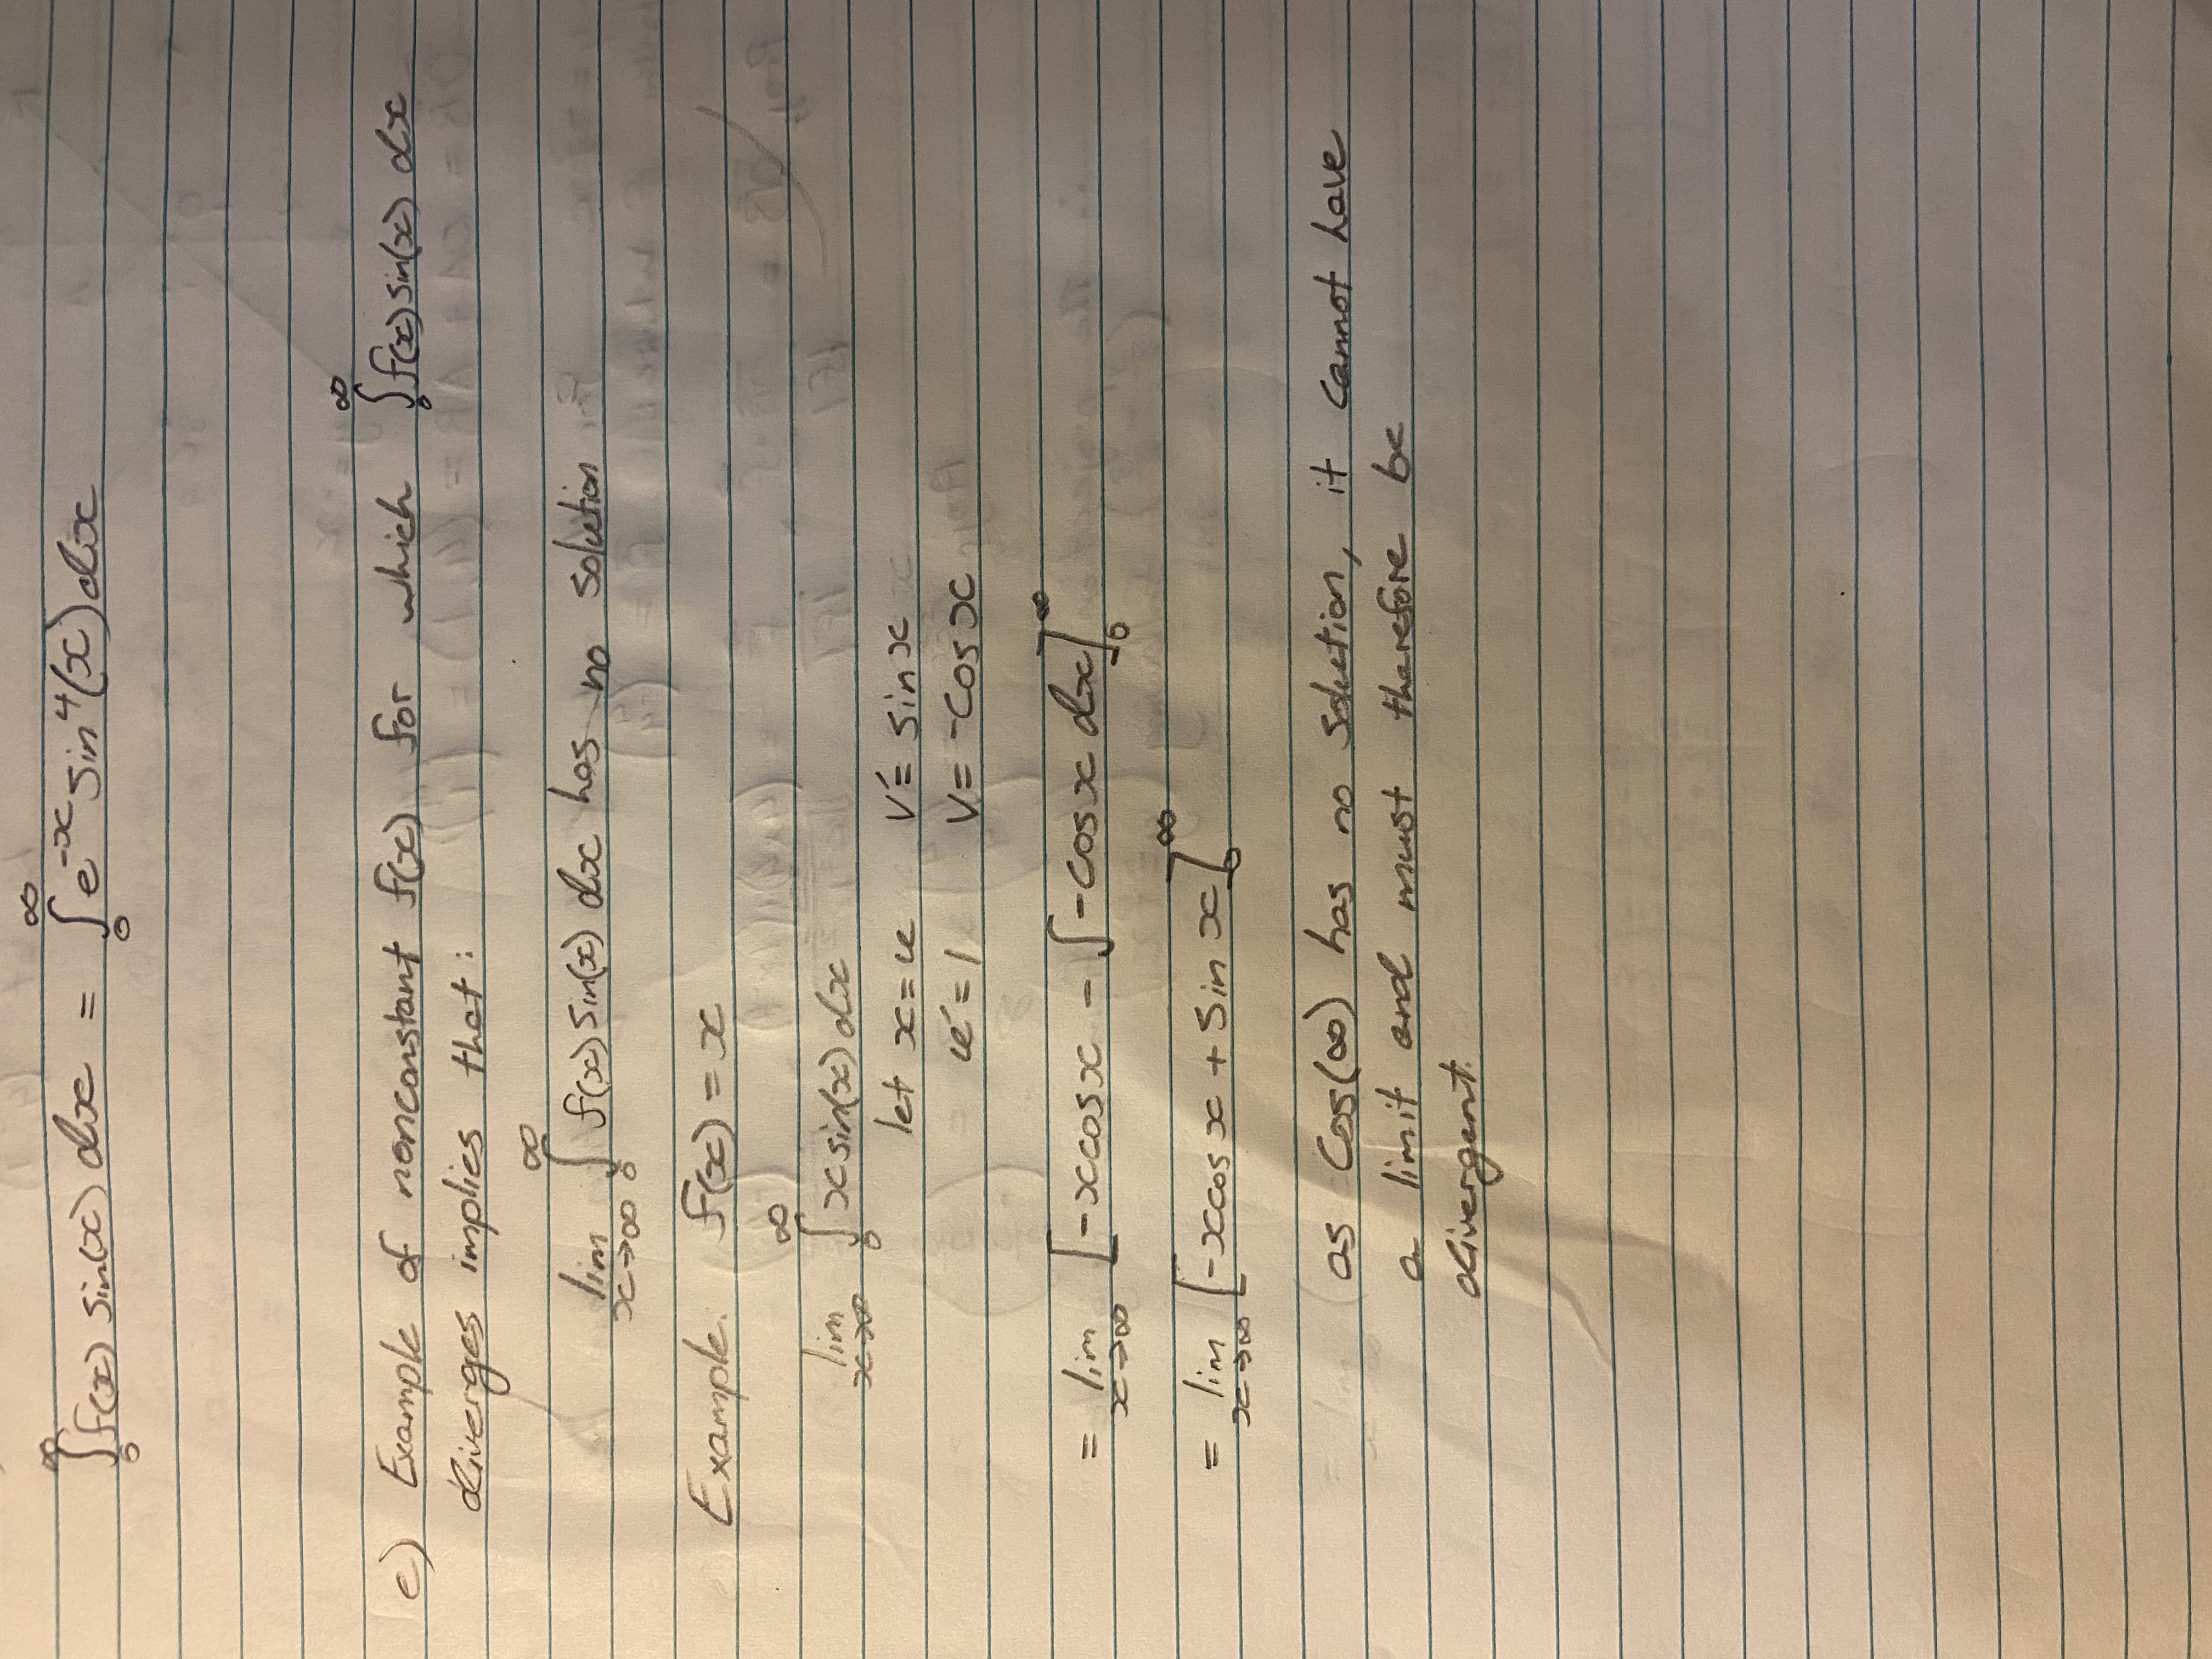 ∫₀^∞ f(x) sin(x) dx = ∫₀^∞ e^{-x} sin⁴(x) dx
e) Example of nonconstant f(x) for which ∫₀^∞ f(x) sin(x) dx
diverges implies that:
lim x→∞ ∫₀^∞ f(x) sin(x) dx has no solution
Example. f(x) = x
lim x→∞ ∫₀^∞ x sin(x) dx
let x = u v' = sin x
u' = 1 v = -cos x
= lim x→∞ [-x cos x - ∫ -cos x dx]₀^∞
= lim x→∞ [-x cos x + sin x]₀^∞
as cos(∞) has no solution, it cannot have
a limit and must therefore be
divergent.